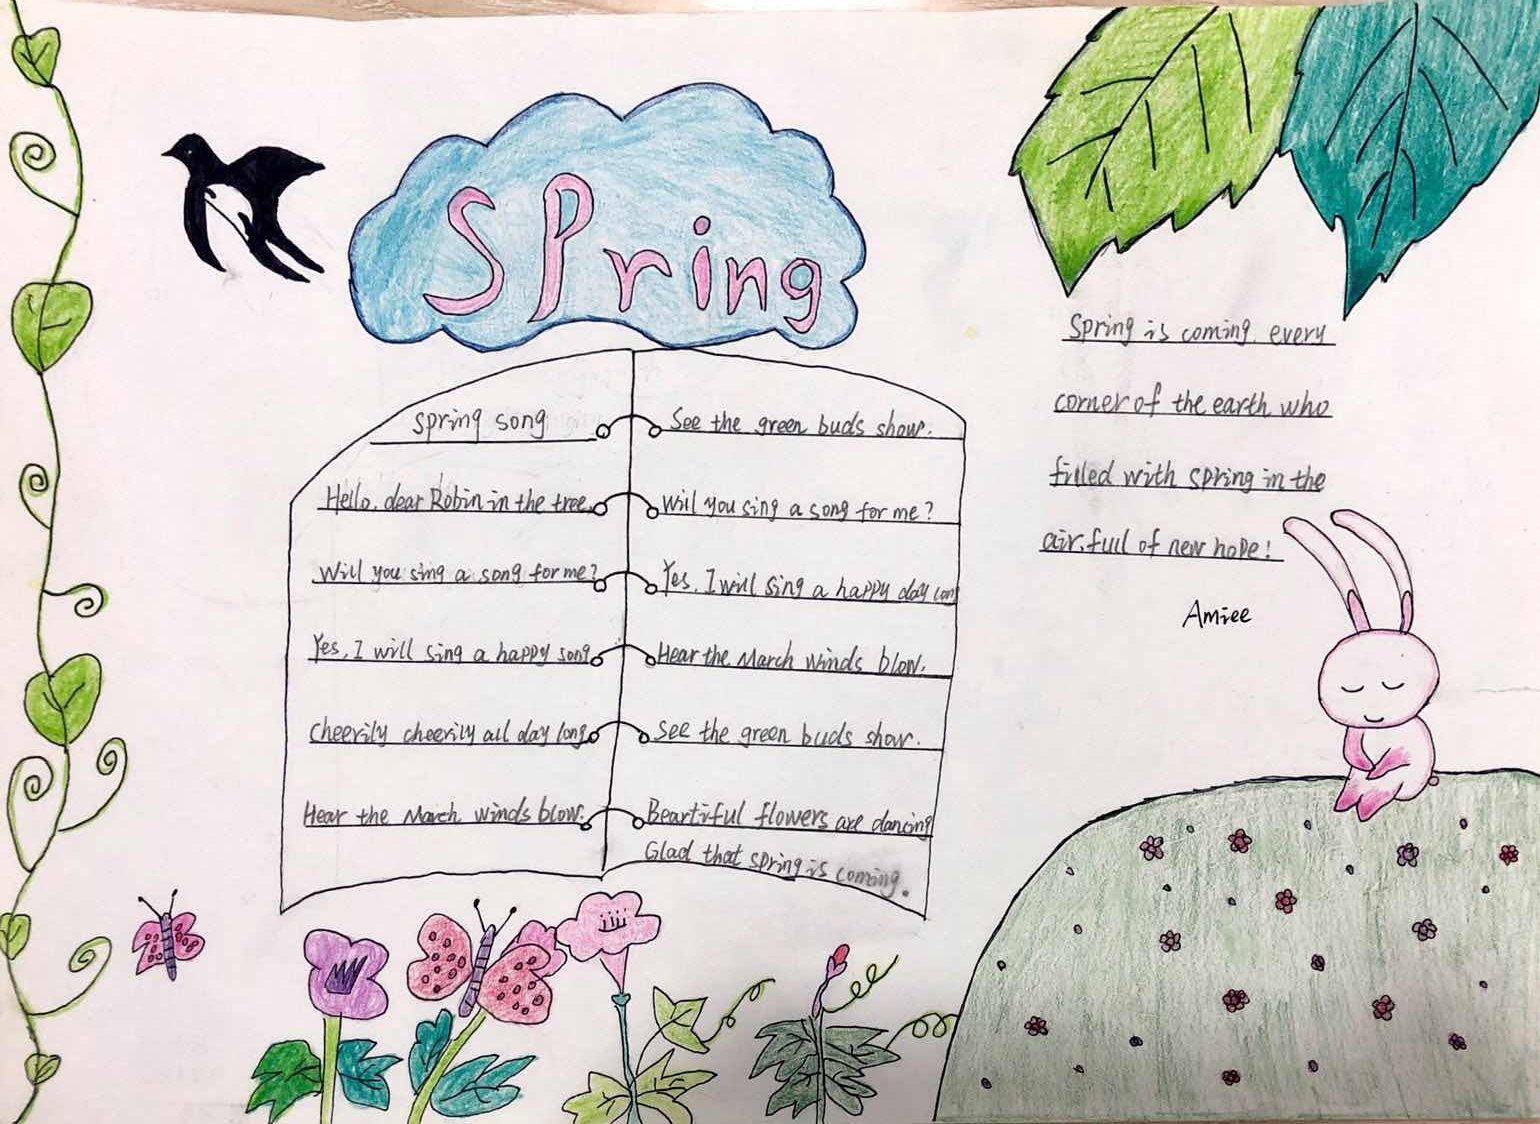 SPring
spring song
Hello, dear Robin in the tree.
Will you sing a song for me?
Yes, I will sing a happy song
cheerily cheerily all day long.
Hear the March winds blow.
See the green buds show.
Will you sing a song for me?
Yes, I will sing a happy day long
Hear the March winds blow.
See the green buds show.
Beartiful flowers are dancing
Glad that spring is coming.
Spring is coming, every
corner of the earth who
filled with spring in the
air, full of new hope!
Amiee